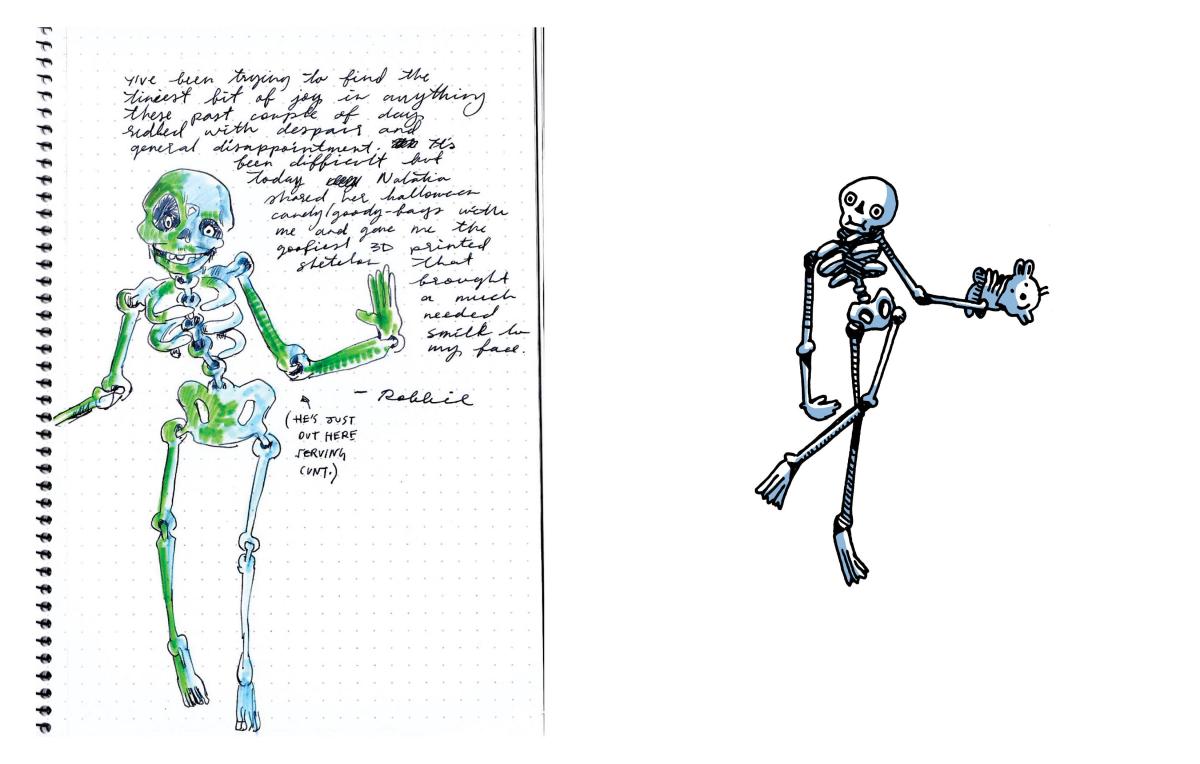 I've been trying to find the
tiniest bit of joy in anything
these past couple of days
ridled with despair and
general disappointment. It's
been difficult but
today Natalia
shared her halloween
candy/goody-bags with
me and gave me the
goofiest 3D printed
skeleton that
brought
a much
needed
smile to
my face.
— Robbie
(HE'S JUST
OUT HERE
SERVING
CUNT.)